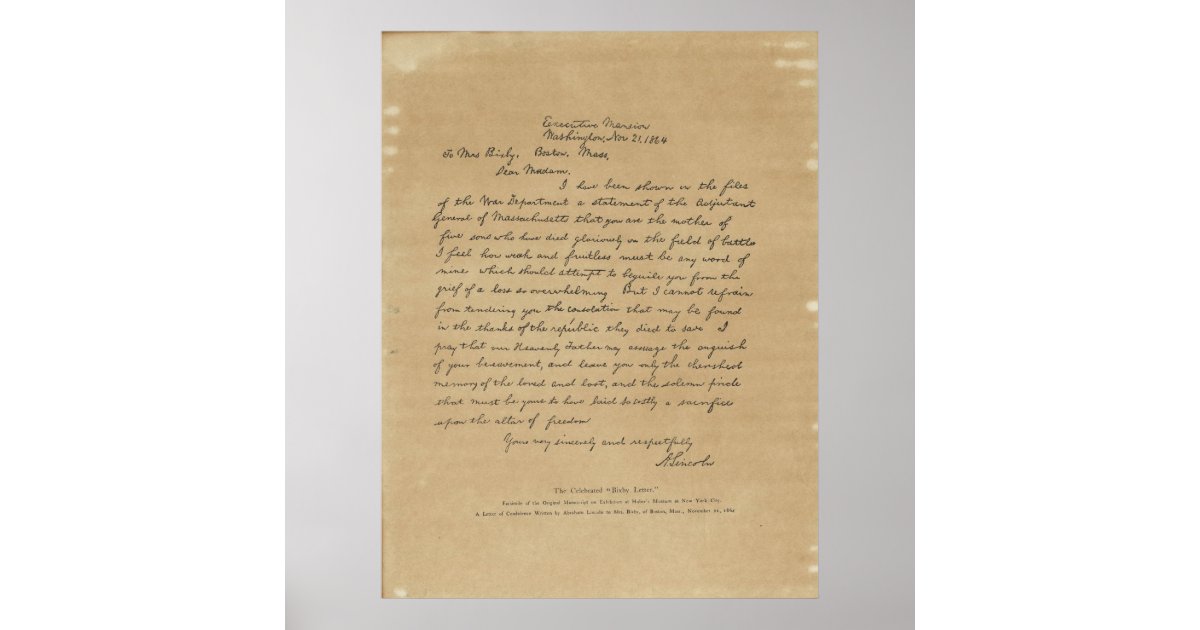 Executive Mansion
Washington, Nov 21, 1864
To Mrs Bixby, Boston. Mass,
Dear Madam,
I have been shown in the files
of the War Department a statement of the Adjutant
General of Massachusetts that you are the mother of
five sons who have died gloriously on the field of battle
I feel how weak and fruitless must be any word of
mine which should attempt to beguile you from the
grief of a loss so overwhelming But I cannot refrain
from tendering you the consolation that may be found
in the thanks of the republic they died to save I
pray that our Heavenly Father may assuage the anguish
of your bereavement, and leave you only the cherished
memory of the loved and lost, and the solemn pride
that must be yours to have laid so costly a sacrifice
upon the altar of freedom
Yours very sincerely and respectfully
A. Lincoln
The Celebrated "Bixby Letter."
Facsimile of the Original Manuscript on Exhibition at Huber's Museum in New York City.
A Letter of Condolence Written by Abraham Lincoln to Mrs. Bixby, of Boston, Mass., November 21, 1864